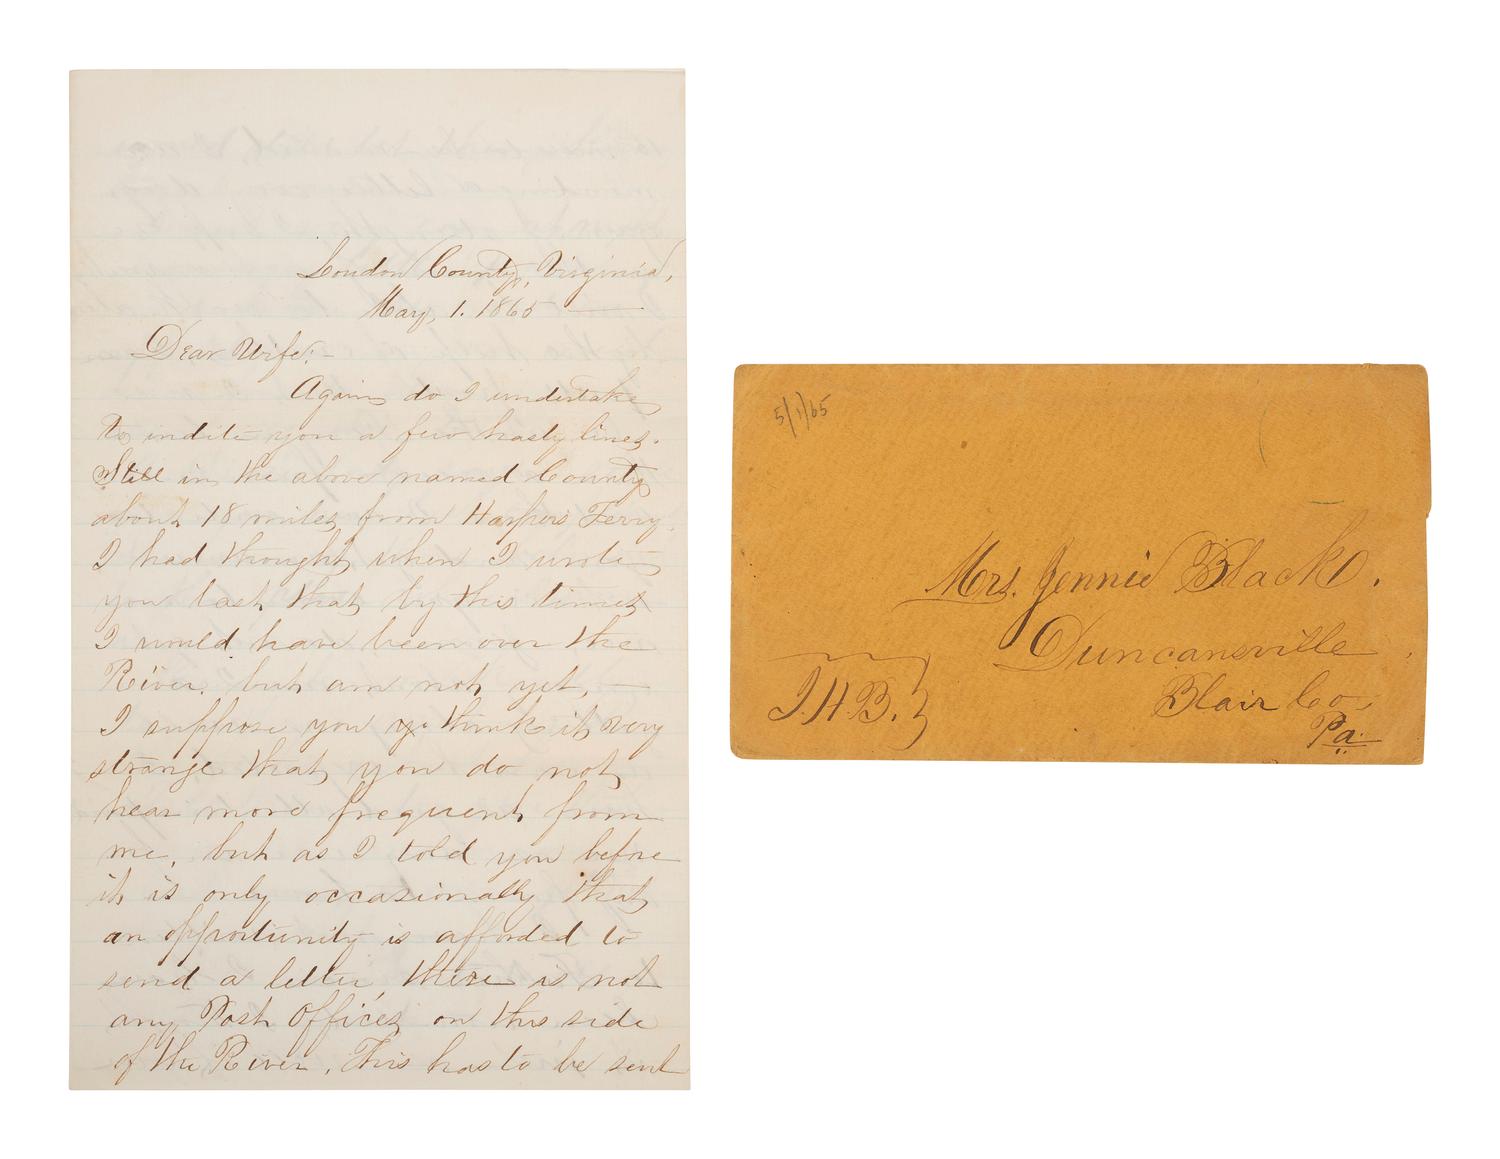 Loudon County, Virginia,
May, 1. 1865
Dear Wife:-
Again do I undertake
to indite you a few hasty lines.
Still in the above named County
about 18 miles from Harpers Ferry.
I had thought when I wrote
you last that by this time
I would have been over the
River, but am not yet, —
I suppose you think it very
strange that you do not
hear more frequent from
me, but as I told you before
it is only occasionally that
an opportunity is afforded to
send a letter, there is not
any Post Offices on this side
of the River. This has to be sent
5/1/65
Mrs. Jennie Black.
Duncansville
Blair Co.
Pa.
J.H.B.